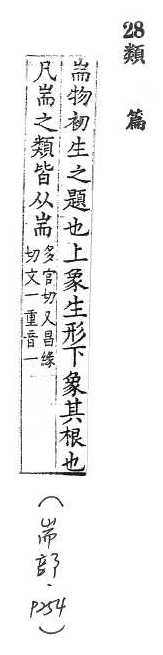 28
類篇
耑物初生之題也上象生形下象其根也
凡耑之類皆从耑多官切又昌緣
切文一重音一
(耑部·P254)